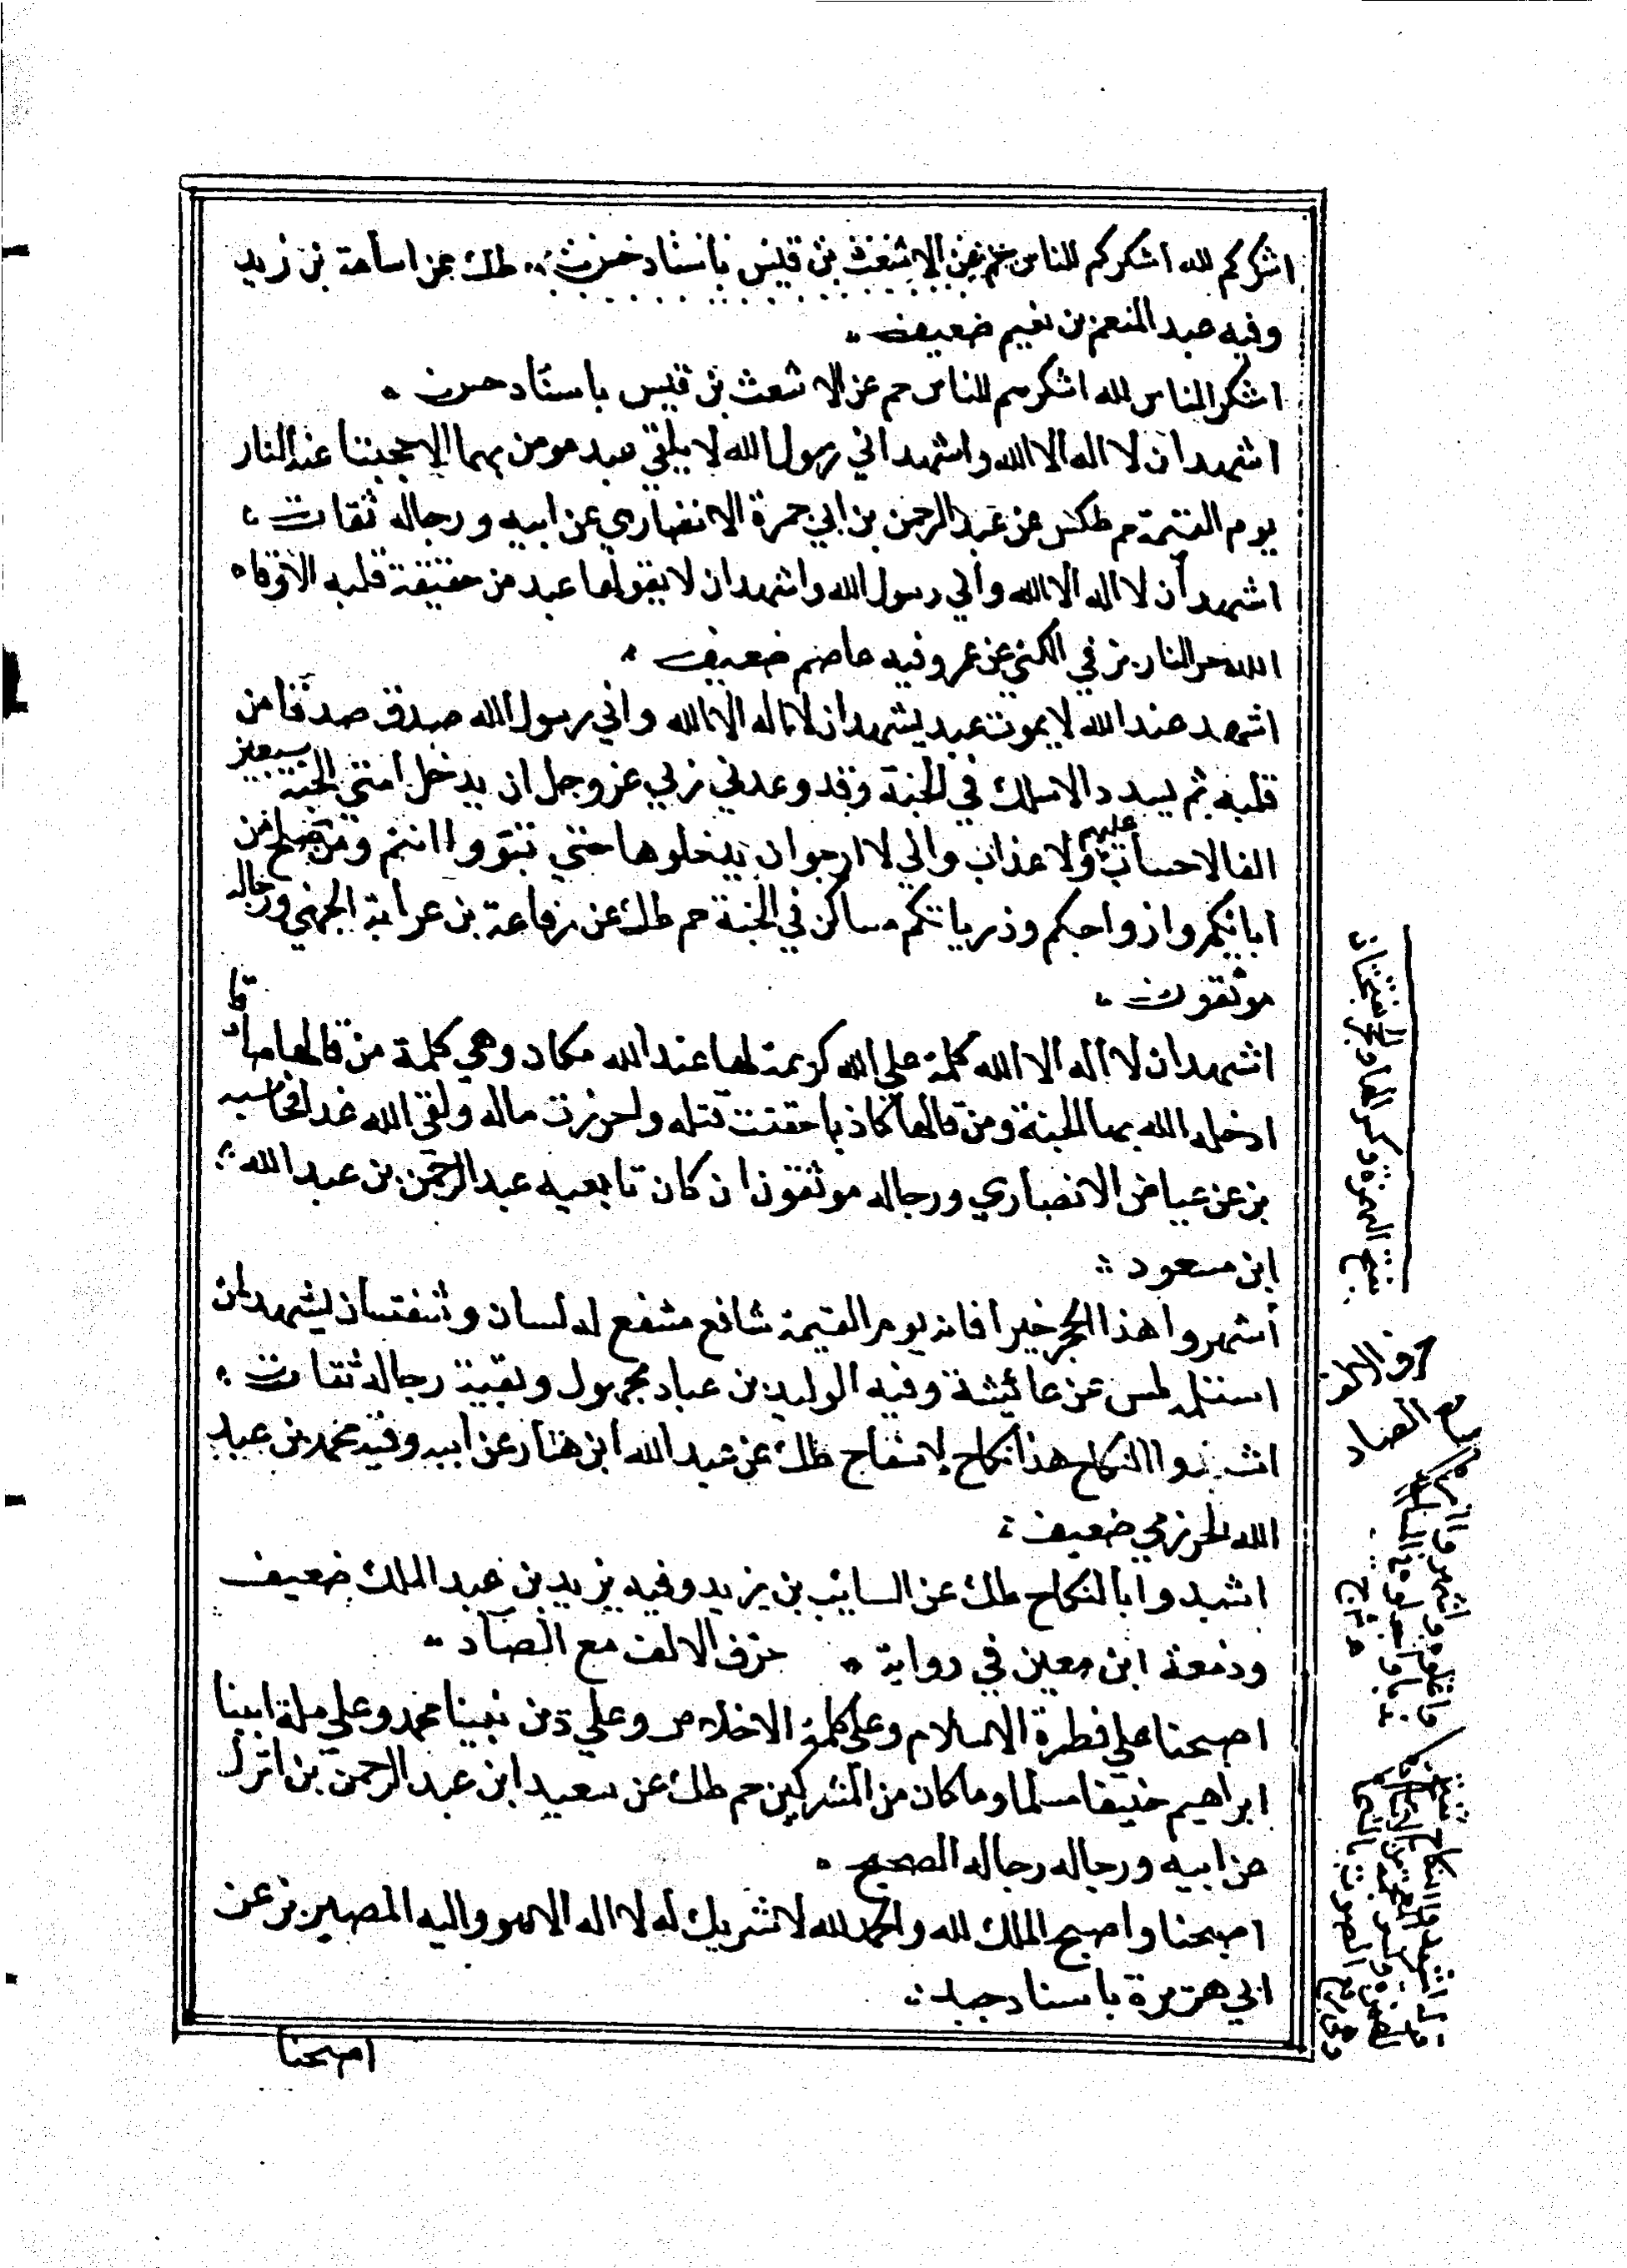 اشكركم لله اشكركم للناس حم عن الاشعث بن قيس باسناد حسن طك عن اسامة بن زيد
وفيه عبد المنعم بن نعيم ضعيف
اشكر الناس لله اشكرهم للناس حم عن الاشعث بن قيس باسناد حسن
اشهد ان لا اله الا الله واشهد اني رسول الله لا يلقي عبد مومن بهما الا حجبتا عنه النار
يوم القيمة حم طكس عن عبد الرحمن بن ابي عمرة الانصاري عن ابيه ورجاله ثقات
اشهد أن لا اله الا الله واني رسول الله واشهد ان لا يقولها عبد من حقيقة قلبه الا وقاه
الله حر النار بز في الكني عن عمر وفيه عاصم ضعيف
اشهد عند الله لا يموت عبد يشهد ان لا اله الا الله واني رسول الله صدق صدقا من
قلبه ثم يسدد الا سلك في الجنة وقد وعدني ربي عز وجل ان يدخل امتي الجنة سبعين
الفا لا حساب عليهم ولا عذاب واني لا ارجوا ان يدخلوها حتي تتبؤوا انتم ومن صلح من
ابائكم وازواجكم وذرياتكم مساكن في الجنة حم طك عن رفاعة بن عرابة الجهني ورجاله
موثقون
اشهد ان لا اله الا الله كلمة علي الله كريمة لها عند الله مكان وهي كلمة من قالها صادقا
ادخله الله بها الجنة ومن قالها كاذبا حقنت قتله واحرزت ماله ولقي الله غدا فحاسبه
بز عن عياض الانصاري ورجاله موثقون ان كان تابعيه عبد الرحمن بن عبد الله
ابن مسعود
أشهروا هذا الحجر خيرا فانه يوم القيمة شافع مشفع له لسان وشفتان يشهد لمن
استلمه طس عن عائيشة وفيه الوليد بن عباد مجهول وبقية رجاله ثقات
اشيدوا النكاح هذا نكاح لا سفاح طك عن عبد الله ابن هبار عن ابيه وفيه محمد بن عبيد
الله العرزمي ضعيف
اشيدوا بالنكاح طك عن السايب بن يزيد وفيه يزيد بن عبد الملك ضعيف
وضعفه ابن معين في رواية حرف الالف مع الصاد
اصبحنا علي فطرة الاسلام وعلي كلمة الاخلاص وعلي دين نبينا محمد وعلي ملة ابينا
ابراهيم حنيفا مسلما وما كان من المشركين حم طك عن سعيد ابن عبد الرحمن بن ابزي
عن ابيه ورجاله رجال الصحيح
اصبحنا واصبح الملك لله والحمد لله لا شريك له لا اله الا هو واليه المصير بز عن
ابي هريرة باسناد جيد
اصبحنا
بفتح الهمزة وكسر الهاء
حرف الالف
مع الصاد